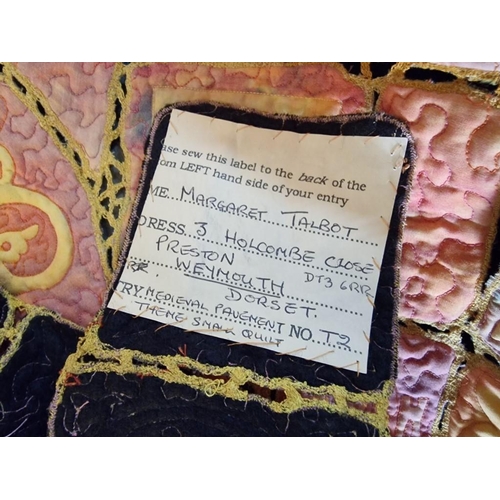 ase sew this label to the back of the
om LEFT hand side of your entry
ME MARGARET TALBOT
DRESS 3 HOLCOMBE CLOSE
PRESTON DT3 6RR
WEYMOUTH
DORSET.
TRY MEDIEVAL PAVEMENT NO. T2
THEME SMALL QUILT